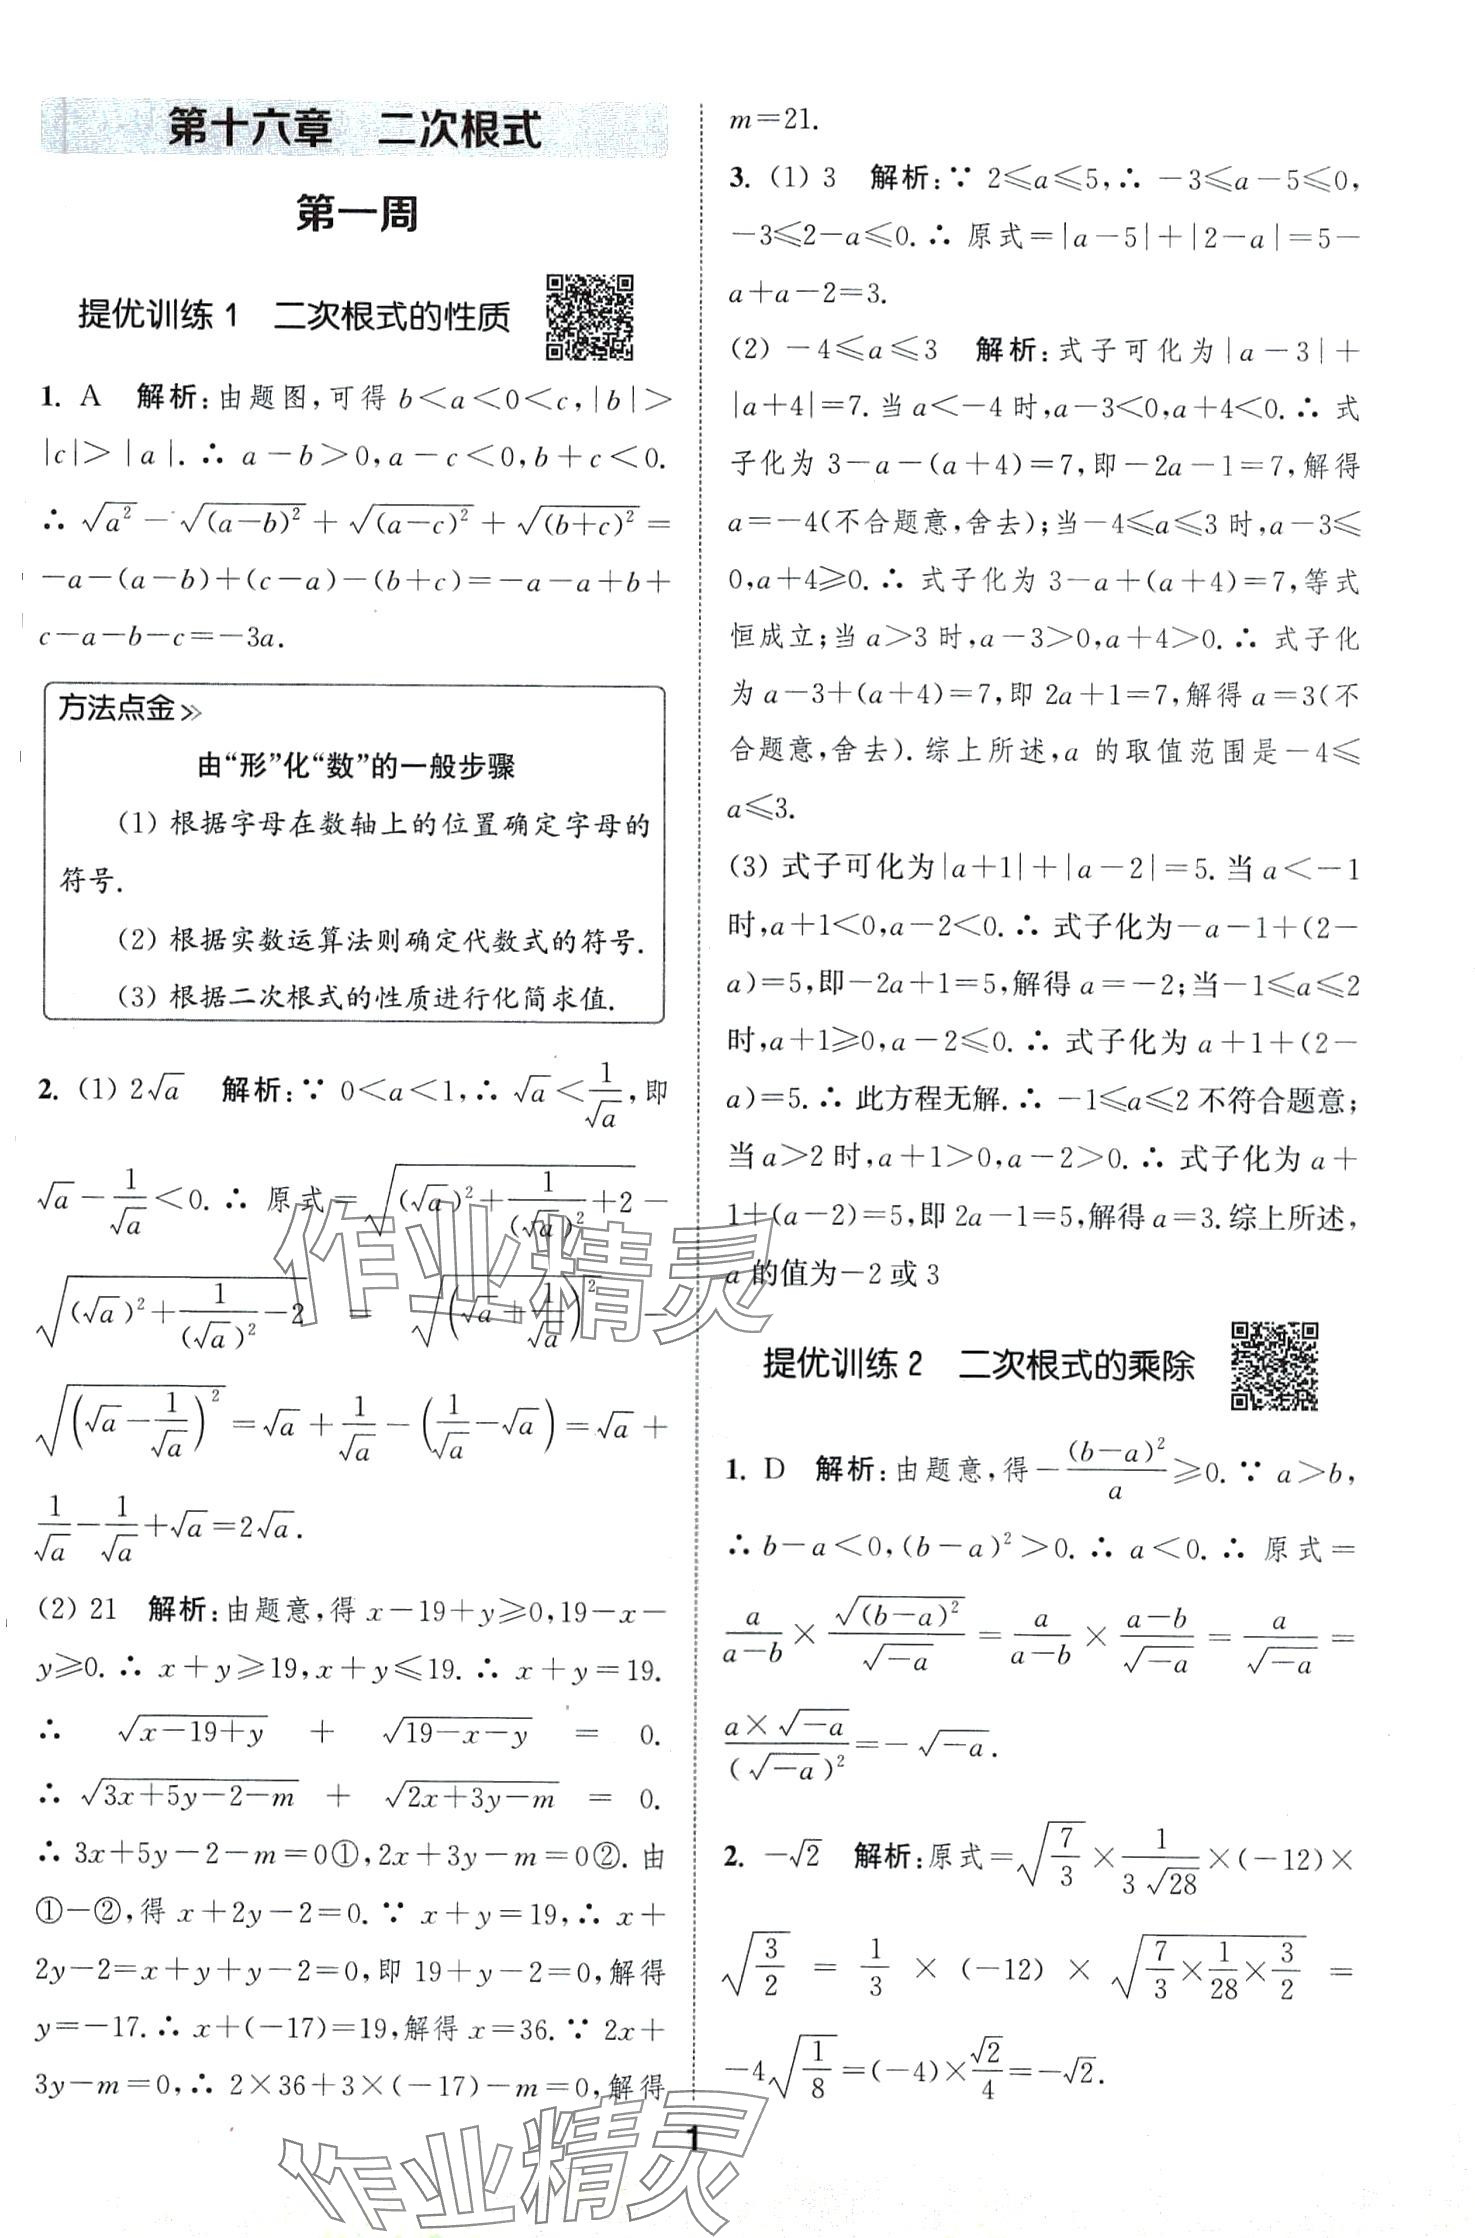 第十六章 二次根式
第一周
提优训练1 二次根式的性质
1. A 解析:由题图,可得 b<a<0<c,|b|>
|c|>|a|.∴ a-b>0,a-c<0,b+c<0.
∴ √(a²)-√((a-b)²)+√((a-c)²)+√((b+c)²)=
-a-(a-b)+(c-a)-(b+c)=-a-a+b+
c-a-b-c=-3a.
方法点金>>
由“形”化“数”的一般步骤
(1) 根据字母在数轴上的位置确定字母的
符号.
(2) 根据实数运算法则确定代数式的符号.
(3) 根据二次根式的性质进行化简求值.
2. (1) 2√a 解析:∵ 0<a<1,∴ √a<1/√a,即
√a-1/√a<0.∴ 原式=√((√a)²+1/(√a)²+2)-
√((√a)²+1/(√a)²-2)=√((√a+1/√a)²)-
√((√a-1/√a)²)=√a+1/√a-(1/√a-√a)=√a+
1/√a-1/√a+√a=2√a.
(2) 21 解析:由题意,得 x-19+y≥0,19-x-
y≥0.∴ x+y≥19,x+y≤19.∴ x+y=19.
∴ √(x-19+y)+√(19-x-y)=0.
∴ √(3x+5y-2-m)+√(2x+3y-m)=0.
∴ 3x+5y-2-m=0①,2x+3y-m=0②.由
①-②,得 x+2y-2=0.∵ x+y=19,∴ x+
2y-2=x+y+y-2=0,即 19+y-2=0,解得
y=-17.∴ x+(-17)=19,解得 x=36.∵ 2x+
3y-m=0,∴ 2×36+3×(-17)-m=0,解得
m=21.
3. (1) 3 解析:∵ 2≤a≤5,∴ -3≤a-5≤0,
-3≤2-a≤0.∴ 原式=|a-5|+|2-a|=5-
a+a-2=3.
(2) -4≤a≤3 解析:式子可化为|a-3|+
|a+4|=7.当 a<-4 时,a-3<0,a+4<0.∴ 式
子化为 3-a-(a+4)=7,即-2a-1=7,解得
a=-4(不合题意,舍去);当-4≤a≤3 时,a-3≤
0,a+4≥0.∴ 式子化为 3-a+(a+4)=7,等式
恒成立;当 a>3 时,a-3>0,a+4>0.∴ 式子化
为 a-3+(a+4)=7,即 2a+1=7,解得 a=3(不
合题意,舍去).综上所述,a 的取值范围是-4≤
a≤3.
(3) 式子可化为|a+1|+|a-2|=5.当 a<-1
时,a+1<0,a-2<0.∴ 式子化为-a-1+(2-
a)=5,即-2a+1=5,解得 a=-2;当-1≤a≤2
时,a+1≥0,a-2≤0.∴ 式子化为 a+1+(2-
a)=5.∴ 此方程无解.∴ -1≤a≤2 不符合题意;
当 a>2 时,a+1>0,a-2>0.∴ 式子化为 a+
1+(a-2)=5,即 2a-1=5,解得 a=3.综上所述,
a 的值为-2 或 3
提优训练2 二次根式的乘除
1. D 解析:由题意,得-(b-a)²/a≥0.∵ a>b,
∴ b-a<0,(b-a)²>0.∴ a<0.∴ 原式=
a/(a-b)×√((b-a)²)/√(-a)=a/(a-b)×(a-b)/√(-a)=a/√(-a)=
(a×√(-a))/(√(-a))²=-√(-a).
2. -√2 解析:原式=√(7/3)×1/(3√28)×(-12)×
√(3/2)=1/3×(-12)×√(7/3×1/28×3/2)=
-4√(1/8)=(-4)×√2/4=-√2.
1
作业精灵
作业精灵